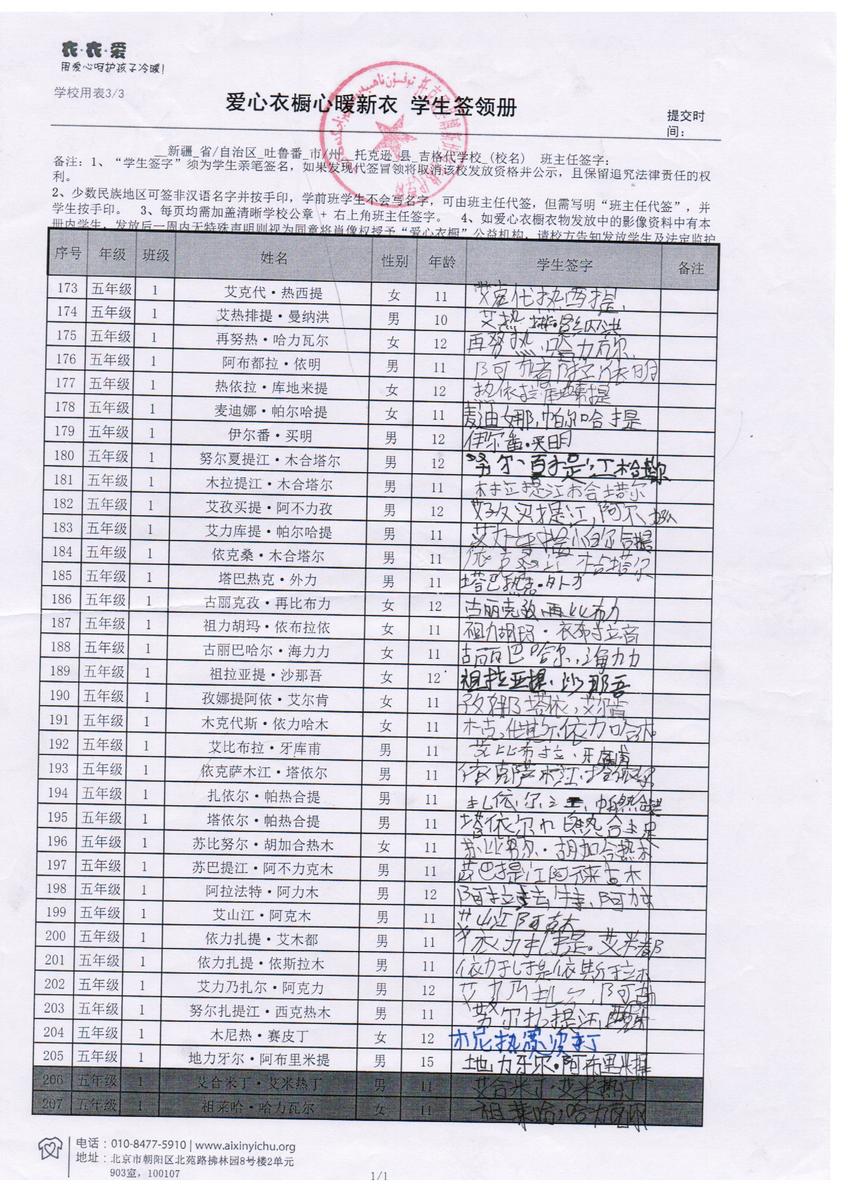 衣·衣·爱
用爱心呵护孩子冷暖!
学校用表3/3
爱心衣橱心暖新衣 学生签领册
提交时
间:
新疆_省/自治区_吐鲁番_市/州_ 托克逊_县_吉格代学校_(校名) 班主任签字:
备注:1、“学生签字”须为学生亲笔签名,如果发现代签冒领将取消该校发放资格并公示,且保留追究法律责任的权
利。
2、少数民族地区可签非汉语名字并按手印,学前班学生不会写名字,可由班主任代签,但需写明“班主任代签”,并
学生按手印。 3、每页均需加盖清晰学校公章 + 右上角班主任签字。 4、如爱心衣橱衣物发放中的影像资料中有本
册内学生,发放后一周内无特殊声明则视为同意将肖像权授予“爱心衣橱”公益机构,请校方告知发放学生及法定监护
序号 年级 班级 姓名 性别 年龄 学生签字 备注
173 五年级 1 艾克代·热西提 女 11 艾克代热西提
174 五年级 1 艾热排提·曼纳洪 男 10 艾热
175 五年级 1 再努热·哈力瓦尔 女 12 再努热·哈力瓦尔
176 五年级 1 阿布都拉·依明 男 11
177 五年级 1 热依拉·库地来提 女 12 热依拉
178 五年级 1 麦迪娜·帕尔哈提 女 11 麦迪娜,帕尔哈提
179 五年级 1 伊尔番·买明 男 12 伊尔番·买明
180 五年级 1 努尔夏提江·木合塔尔 男 12 努尔夏提江
181 五年级 1 木拉提江·木合塔尔 男 11 木拉提江木合塔尔
182 五年级 1 艾孜买提·阿不力孜 男 12
183 五年级 1 艾力库提·帕尔哈提 男 11
184 五年级 1 依克桑·木合塔尔 男 11 木合塔尔
185 五年级 1 塔巴热克·外力 男 11 塔巴热克·外力
186 五年级 1 古丽克孜·再比布力 女 12 古丽克孜,再比布力
187 五年级 1 祖力胡玛·依布拉依 女 11 祖力胡玛·衣布
188 五年级 1 古丽巴哈尔·海力力 女 11 古丽巴哈尔,海力力
189 五年级 1 祖拉亚提·沙那吾 女 12 祖拉亚提·沙那吾
190 五年级 1 孜娜提阿依·艾尔肯 女 11
191 五年级 1 木克代斯·依力哈木 女 11 依力哈木
192 五年级 1 艾比布拉·牙库甫 男 11 艾比布拉·牙库甫
193 五年级 1 依克萨木江·塔依尔 男 11 依克萨木江·塔依尔
194 五年级 1 扎依尔·帕热合提 男 11 扎依尔
195 五年级 1 塔依尔·帕热合提 男 11 塔依尔
196 五年级 1 苏比努尔·胡加合热木 女 11 苏比努尔·胡加合热木
197 五年级 1 苏巴提江·阿不力克木 男 11 苏巴提江
198 五年级 1 阿拉法特·阿力木 男 12 阿拉法特,阿力木
199 五年级 1 艾山江·阿克木 男 11 艾山江阿克木
200 五年级 1 依力扎提·艾木都 男 11 依力扎提·艾米都
201 五年级 1 依力扎提·依斯拉木 男 11 依力扎提依斯拉木
202 五年级 1 艾力乃扎尔·阿克力 男 12 艾力乃扎尔
203 五年级 1 努尔扎提江·西克热木 男 11 努尔扎提江
204 五年级 1 木尼热·赛皮丁 女 12 木尼热赛皮丁
205 五年级 1 地力牙尔·阿布里米提 男 15 地力牙尔·阿布里米提
206 五年级 1 艾合米丁·艾米热丁 男 11 艾合米丁·艾米热丁
207 五年级 1 祖莱哈·哈力瓦尔 女 11 祖莱哈,哈力瓦尔
电话:010-8477-5910 | www.aixinyichu.org
地址:北京市朝阳区北苑路拂林园8号楼2单元
903室,100107
1/1